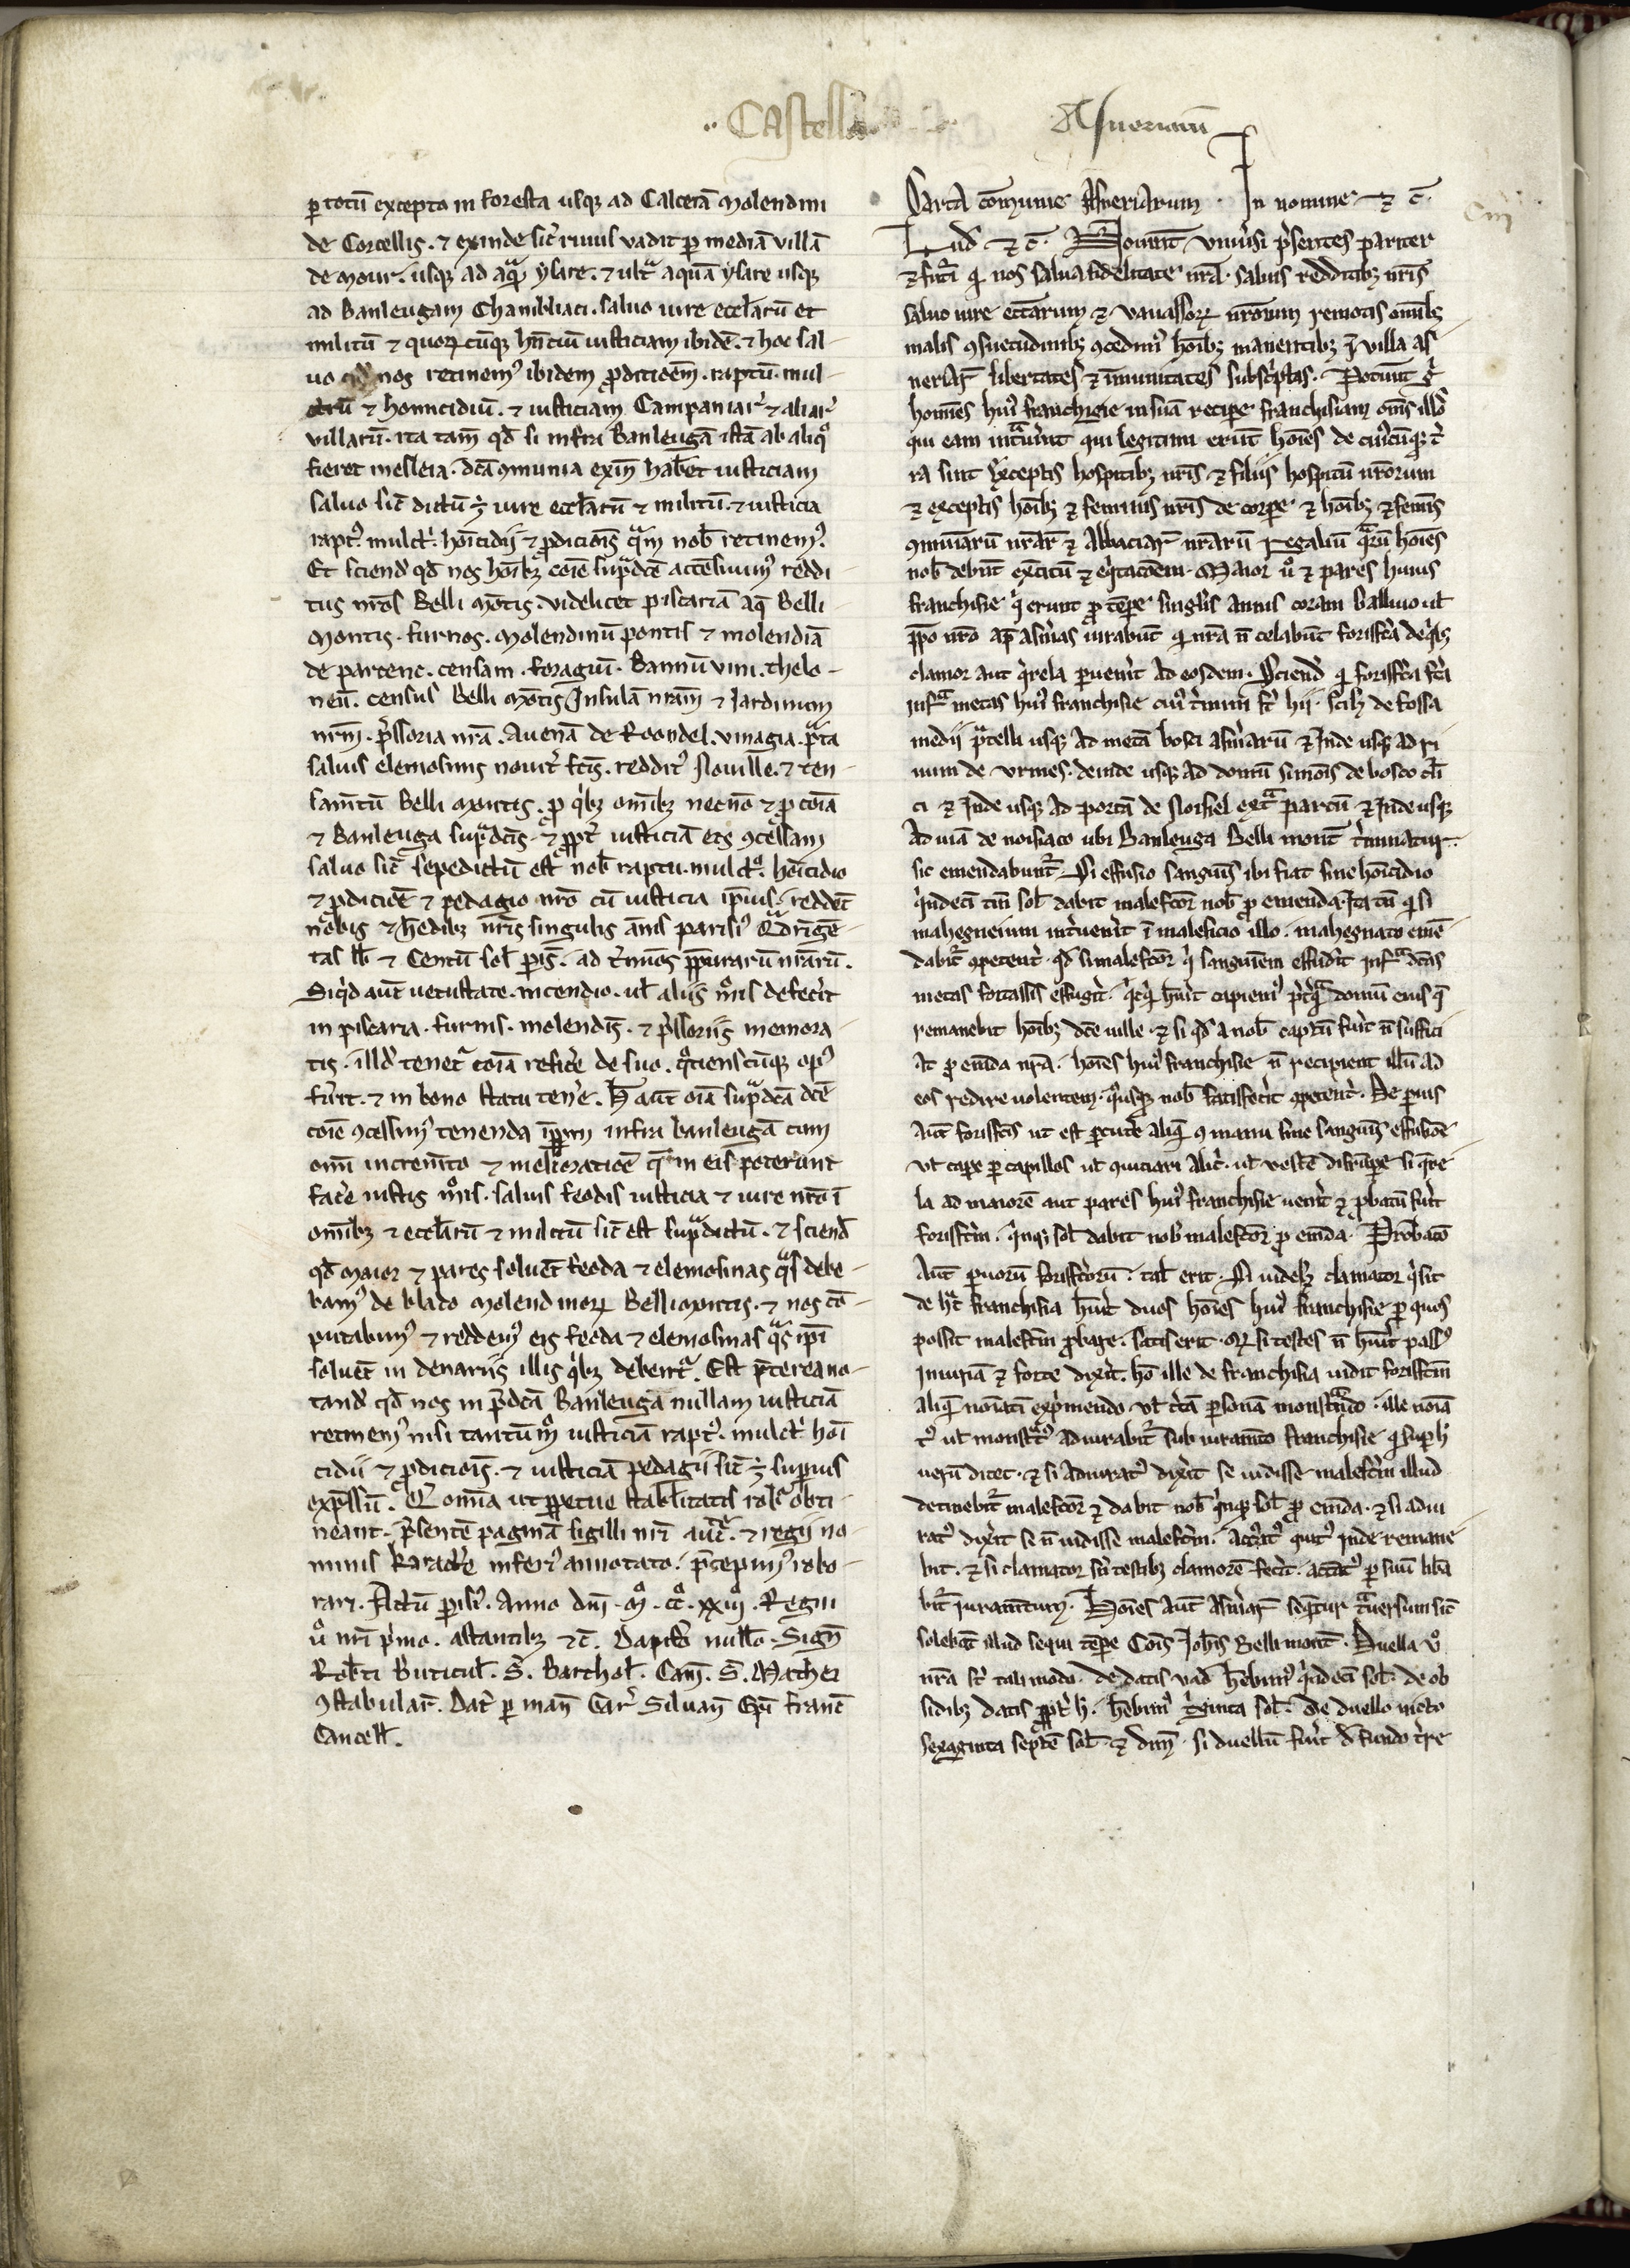 Castell
Asneriarum
ꝑ totū excepto in foresta usq; ad Calceiā Molendini
de Corcellis. ⁊ exinde sic̄ riuus vadit ꝑ mediā villā
de Mour. usq; ad aqͣꝫ ysare. ⁊ ultͣ aquā ysare usq;
ad Banleugam Chambliaci. saluo iure eccl̄arū et
militū ⁊ quoꝝcūq; hn̄ciū iusticiam ibidē. ⁊ hoc sal-
uo qđ nos retinemꝰ ibidem ꝓditiōēm. raptū. mul-
trū ⁊ homicidiū. ⁊ iusticiam Campaniar̄ ⁊ aliar̄
villarū. ita tam̄ qđ si infra Banleugā istā ab aliqͦ
fieret mesleia. dc̄a ꝯmunia exīn hab̄et iusticiam
saluo sic̄ dictū ē iure eccl̄arū ⁊ militū. ⁊ iusticia
raptꝰ. multri. hoīcidij ⁊ ꝓdicioīs qͣm nob̄ retinemꝰ.
Et sciend̄ qđ nos hoībꝫ coīe supͣdc̄e accēsiuimꝰ reddi-
tus nr̄os Belli mōtis. videlicet piscariā aq̄ Belli-
montis. furnos. molendinū pontis ⁊ molendīa
de partenc. censam. foragiū. Bannū vini. thelo-
neū. census Belli mōtis Insulā nr̄am ⁊ Jardinum
nr̄m. p̄ssoria nr̄a. Auenā de Roondel. vinagia. pͣta
saluis elemosinis nouit̄ fc̄is. redditꝰ Nouille. ⁊ ten-
samtū Belli montis. ꝓ q̇bꝫ omībꝫ necnō ⁊ ꝓ coīa
⁊ Banleuga supͣdc̄is. ⁊ ꝓpt̄ iusticiā eis ꝯcessam
saluo sic̄ sepedictū est nob̄ raptu. multͦ. hoīcidio
⁊ ꝓdiciōe ⁊ pedagio nr̄o cū iusticia ip̄ius. reddēt
nobis ⁊ h̄edibꝫ nr̄is singulis ānis parisiꝰ Qͣdrigē-
tas lƀ ⁊ Centū sol̄ par̄. ad t̄minos p̄p̄iturarū nr̄arū.
Siqͥd aut̄ uetustate. incendio. ul̄ aliis mͦis defec̄it
in piscaria. furnis. molendis. ⁊ p̄ssoriis memora-
tis. illđ teneͭ coīa refic̄e de suo. qͦcienscūque opꝰ
fūit. ⁊ in bono statu ten̄e. H̄ aut̄ oīa supͣdc̄a dc̄e
coīe ꝯcessimꝰ tenenda īꝑpm̄ infra banleugā cum
omī incremto ⁊ meliorationē qͣm in eis poterunt
fac̄e iustis mͦis. saluis feodis iusticia ⁊ iure nr̄o ī
omībꝫ ⁊ eccl̄arū ⁊ militū sic̄ est supͣdictū. ⁊ sciend̄
qđ Maior ⁊ pares soluēt feoda ⁊ elemosinas qͣs debe-
bamꝰ de blado molendinoꝝ Belli montis. ⁊ nos cō-
putabimꝰ ⁊ reddemꝰ eis feoda ⁊ elemosinas qͣs ip̄i
soluēt in denariis illis qͥbꝫ debentͬ. Est p̄terea no-
tand̄ qđ nos in p̄dc̄a Banleuga nullam iusticiā
retinemꝰ nisi tantūmͦ iusticiā raptꝰ. multri hoī
cidii ⁊ ꝓdicioīs. ⁊ iusticiā pedagii sic̄ ē suꝑius
exp̄ssū. Q̄ omīa ut ꝑpetue stabilitatis robͬ obti-
neant. p̄sentē paginā sigilli nr̄i auctͣ. ⁊ regii no-
minis karact̄e inferiꝰ annotato. p̄cepimꝰ robo-
rari. Actū parisiꝰ. Anno dn̄i. Mͦ. CCͦ. xxiijͦ. Regni
ūͦ nr̄i p̄mo. astantibꝫ ⁊c̄. Dapif̄o nullo. Sign̄
Rob̄ti Buticul̄. S̄. Barthol̄. Cam̄. S̄. Mathei
ꝯstabular̄. Dat̄ ꝑ man̄ Gar̄ Siluan̄ Ep̄i Franc̄
Cancell̄.
Carta comunie Asneriarum. In nomine ⁊ c̄.
Lud̄ ⁊ c̄. Nouint̄ vniūsi p̄sentes pariter
⁊ fut̄i qͥ nos salua fidelitate nr̄a. saluis redditibꝫ nr̄is
saluo iure ecc̄arum ⁊ vauassoꝝ nr̄orum remotis omībꝫ
malis ꝯsuetudinibꝫ ꝯcedimꝰ hoībꝫ manentibꝫ ī villa as-
neriar̄ libertates ⁊ īmunitates subsc̄ptas. Potūnt g͛
homīes huiꝰ franchisie in suā reciꝑe franchisiam om̄s illos
qui eam intͣūint qui legitimi erūt hoīes de cuiꝰcūqꝫ t̄
ra sint exceptis hospitibꝫ nr̄is ⁊ filiis hospitū nr̄orum
⁊ exceptis hoībꝫ ⁊ feminis nr̄is de corꝑe ⁊ hoībꝫ ⁊ femīs
ꝯmuniarū nr̄ar̄ ⁊ Abbaciar̄ nr̄arū regaliū qͣrū hoīes
nob̄ debūt exc̄itū ⁊ eqͥtacōem. Maior ūͦ ⁊ pares huius
franchisie qͥ erunt ꝓ tēꝑe singlis annis coram ballivo ul̄
pp̄o nr̄o ap̄ asnīas iurabūt qͥ nr̄a n̄ celabūt forisfc̄a de qͥbꝫ
clamor aut q̄rela ꝑuen̄it ad eosdem. Sciend̄ qͥ forisfc̄a fc̄a
infͣ metas huiꝰ franchisie cuiꝰ t̄mini st̄ hij. scilꝫ de fossa
medij pͣtelli usqꝫ ad metā bosci asnīarū ⁊ Inde usqꝫ ad ri
uum de vrmes. deinde usqꝫ ad domū simōis de bosco cl̄i
ci ⁊ Inde usqꝫ ad portā de Noisiel extͣ parcū ⁊ Inde usqꝫ
ad uiā de noisiaco ubi Banleuga Belli mont̄ t̄minatur.
sic emendabuntͬ. Si effusio sanguīs ibi fiat sine hoīcidio
qͥndecī tm̄ sol̄ dabit malefcōr nob̄ ꝓ emenda. Ita tn̄ qͥ si
mahegneium int̄uen̄it ī maleficio illo. mahegnato emē
dabitͬ ꝯpetent̄. qđ si malefcōr qͥ sanguinem effud̄it infͣ dc̄as
metas fortassis effuḡit. qͥcqͥd hūit capiemꝰ p̄tqͣ domū eius q̄
remanebit hoībꝫ dc̄e uille. ⁊ si qđ a nob̄ captū fūit n̄ suffici
at ꝓ emēda nr̄a. hoīes huiꝰ franchisie n̄ recipient illū ad
eos redire uolentem. qͦusqꝫ nob̄ satisfec̄it ꝯpetent̄. De ꝑuis
aut̄ forisfc̄is ut est ꝑcut̄e aliq̄ ꝯ manu sine sanguīs effusiōe
vl̄ caꝑe ꝑ capillos ul̄ ꝯuiciari alic̄. ul̄ vestē disrūꝑe si q̄re
la ad maiorē aut pares huiꝰ franchisie uen̄it ⁊ ꝓbatū fūit
forisfc̄m. qͥnqꝫ sol̄ dabit nob̄ malefcōr ꝓ emēda. Probaco
aut̄ ꝑuorū forisfc̄orū. tal̄ erit. Si uidelꝫ clamator qͥ sit
de hͣc franchisia hūit duos hoīes huiꝰ franchisie ꝑ quos
possit malefc̄m ꝓbare. satis erit. Qͥ si testes n̄ hūit passꝰ
iniuriā ⁊ forte dix̄it. hō ille de franchisia uidit forisfc̄m
aliq̄ noīatī exp̄mendo vl̄ c̄tā ꝑsonā monstͣndo. ille noīa
tꝰ ul̄ monstͣtꝰ adiurabitͬ sub iuramto franchisie qͥ suꝑ h̄
uerū dicet. ⁊ si adiuratꝰ dix̄it se uidisse malefc̄m illud
detinebitͬ malefcōr ⁊ dabit nob̄ qͥnqꝫ sol̄ ꝓ emēda. ⁊ si adiu
ratꝰ dix̄it se n̄ uidisse malefc̄m. accͥtꝰ quitꝰ Inde remane-
bit. ⁊ si clamator sn̄ testibꝫ clamorē fec̄it. accātꝰ ꝑ suū lib̄a
bitͬ iuramtum. Hoīes aut̄ asnīar̄ seqntur tͣuersum sic̄
solebāt illud sequi tēꝑe Com̄ Joh̄is Belli mont̄. Duella ūͦ
nr̄a st̄ tali modo. de datis vad̄ heb̄imꝰ qͥndecī sol̄. de ob
sidibꝫ datis ꝓpt̄ h̄. heb̄imꝰ tͥginta sol̄. de duello uicto
sexaginta septē sol̄ ⁊ dim̄. si duellū fūit đ fundo t̄re